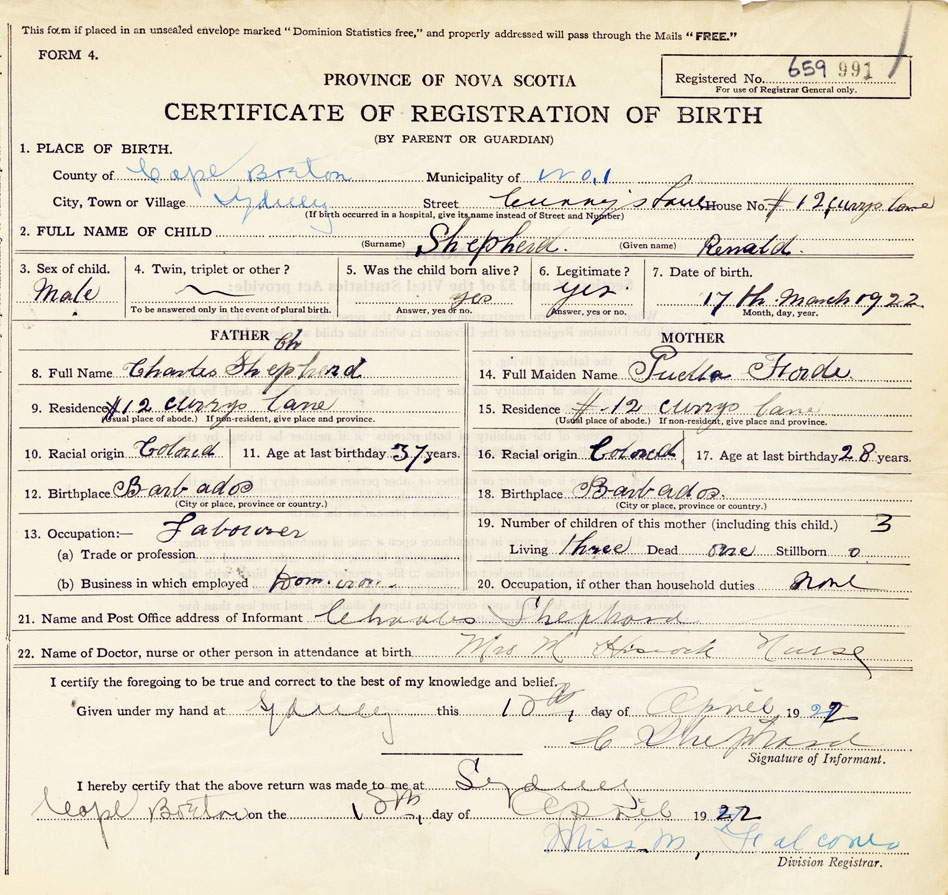 This form if placed in an unsealed envelope marked "Dominion Statistics free," and properly addressed will pass through the Mails "FREE."
FORM 4.
PROVINCE OF NOVA SCOTIA
Registered No. 659 991
For use of Registrar General only.
CERTIFICATE OF REGISTRATION OF BIRTH
(BY PARENT OR GUARDIAN)
1. PLACE OF BIRTH.
County of Cape Breton Municipality of Wo.1
City, Town or Village Sydney Street Curry's Lane House No. # 12 currys lane
(If birth occurred in a hospital, give its name instead of Street and Number)
2. FULL NAME OF CHILD Shepherd. Renald.
(Surname) (Given name)
3. Sex of child. 4. Twin, triplet or other? 5. Was the child born alive? 6. Legitimate? 7. Date of birth.
Male yes yes 17 th March 1922
To be answered only in the event of plural birth. Answer, yes or no. Answer, yes or no. Month, day, year.
FATHER MOTHER
8. Full Name Charles Shepherd 14. Full Maiden Name Forde
9. Residence #12 currys lane 15. Residence # 12 currys lane
(Usual place of abode.) If non-resident, give place and province. (Usual place of abode.) If non-resident, give place and province.
10. Racial origin Colored 11. Age at last birthday 37 years. 16. Racial origin Colored 17. Age at last birthday 28 years.
12. Birthplace Barbados 18. Birthplace Barbados.
(City or place, province or country.) (City or place, province or country.)
13. Occupation:— Labourer 19. Number of children of this mother (including this child.) 3
(a) Trade or profession Living three Dead one Stillborn 0
(b) Business in which employed Dom. iron 20. Occupation, if other than household duties none
21. Name and Post Office address of Informant Charles Shephard
22. Name of Doctor, nurse or other person in attendance at birth Mrs M Hiscock Nurse
I certify the foregoing to be true and correct to the best of my knowledge and belief.
Given under my hand at Sydney this 10th, day of April 1922
C Shephard
Signature of Informant.
I hereby certify that the above return was made to me at Sydney
Cape Breton on the 18th, day of April 1922
Miss M, Falconer
Division Registrar.